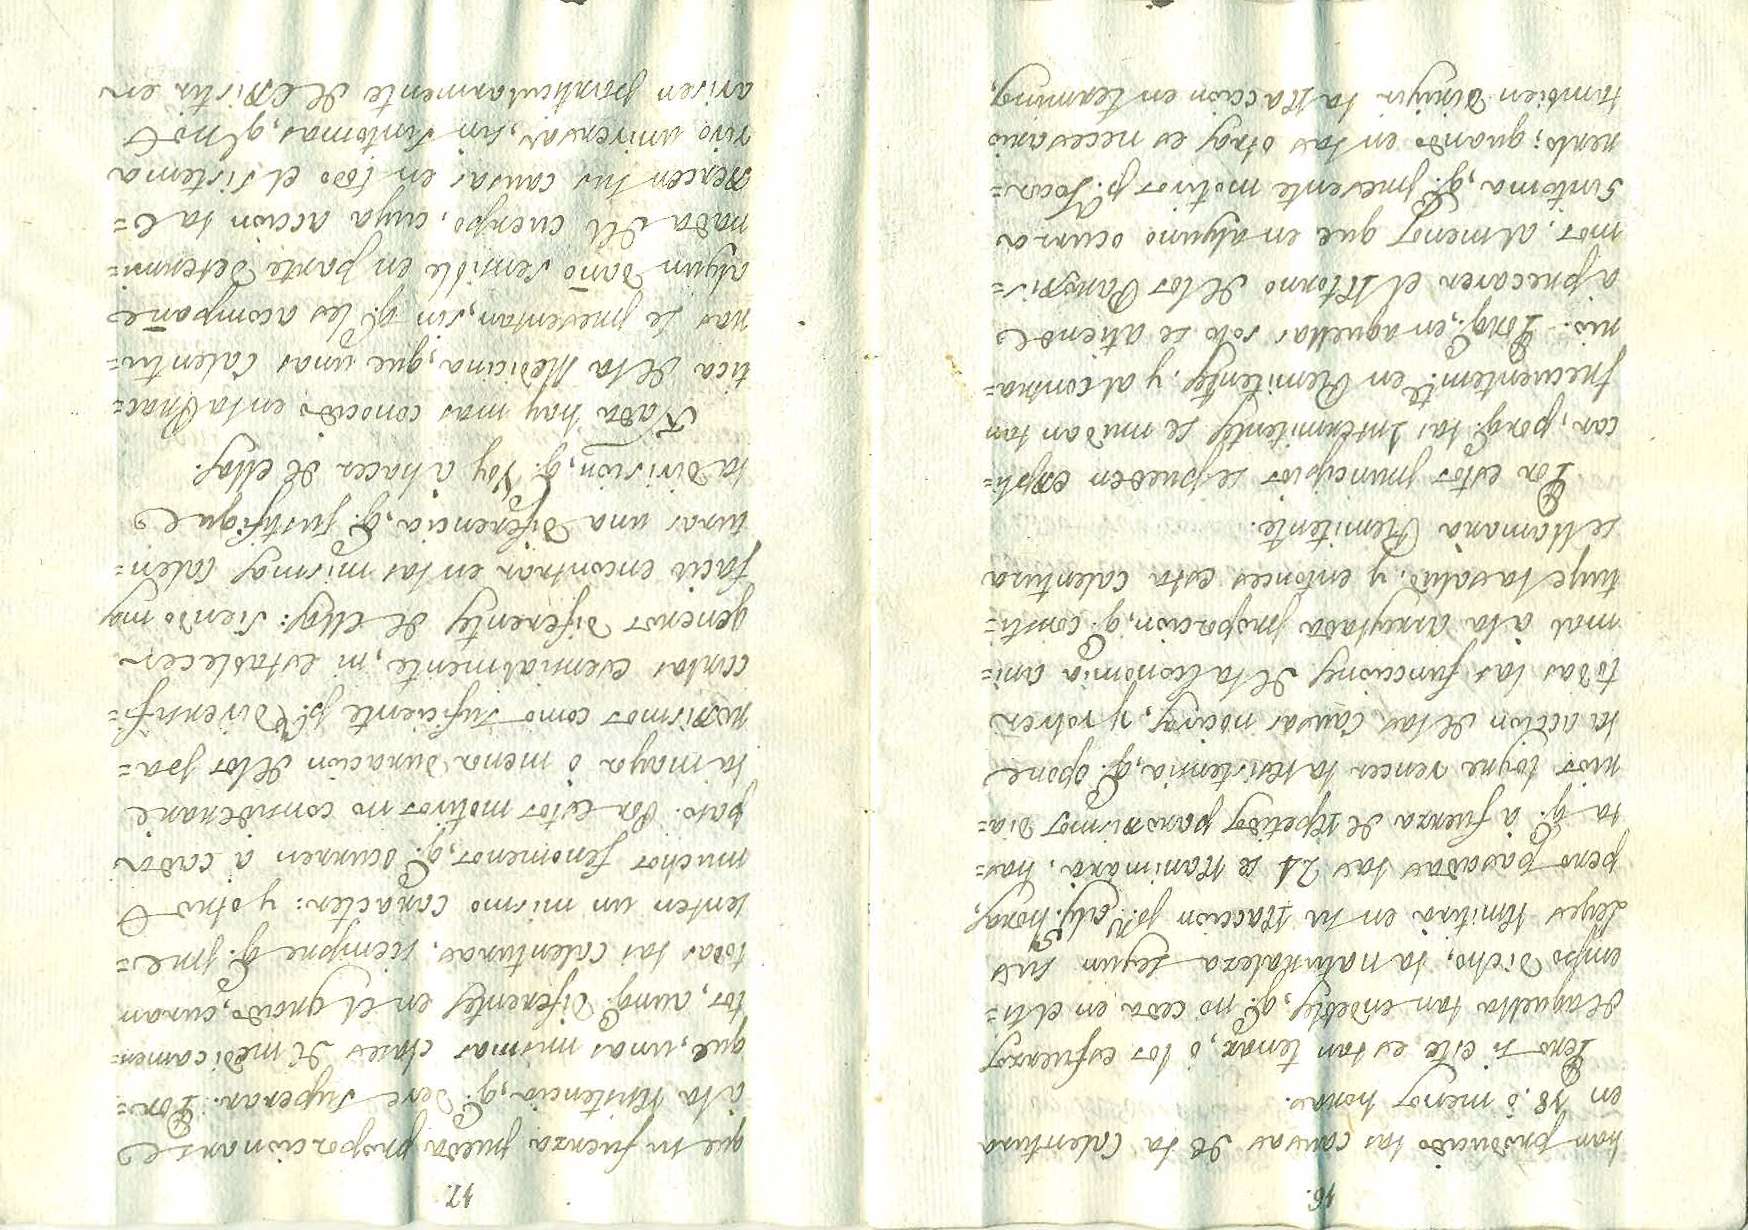 46.
han producido las causas de la Calentura
en 18. ò menos horas.
Pero si este es tan tenaz, ò los esfuerzos
de aquella tan endebles, q.e no ceda en el ti=
empo dicho, la naturaleza segun sus
Leyes remitirà en su reaccion p.r alg.s horas;
pero pasadas las 24 se reanimarà, has=
ta q.e à fuerza de repetidos paroxismos dia=
rios logre vencer la resistencia, q.e opone
la accion de las causas nocivas, y volver
todas las funciones de la Economia ani=
mal à la arreglada proporcion, q.e consti=
tuye la salud; y entonces esta calentura
se llamarà Remitente.
Por estos principios se pueden expli=
car, porq.e las Intermitentes se mudan tan
frecuentem.te en Remitentes, y al contra=
rio. Porq.e en aquellas solo se atiende
a precaver el retorno de los Paroxis=
mos, al menos que en alguno ocurra
Sintoma, q.e presente motivos p.a Socor=
rerlo; quando en las otras es necesario
tambien dirigir la reaccion en terminos,
47.
que su fuerza pueda proporcionarse
à la resistencia, q.e deve superar. Por=
que, unas mismas clases de medicamen=
tos, aunq.e diferentes en el grado, curan
todas las Calenturas, siempre q.e pre=
senten un mismo caracter: y otros
muchos fenomenos, q.e ocurren à cada
paso. Por estos motivos no considerare
la mayor ò menor duracion de los pa=
roxismos como suficiente p.a diversifi=
carlas esencialmente, ni establecer
generos diferentes de ellas: siendo mas
facil encontrar en las mismas Calen=
turas una diferencia, q.e justifique
la division, q.e voy à hacer de ellas.
Nada hay mas conocido en la Prac=
tica de la Medicina, que unas Calentu=
ras se presentan, sin q.e les acompañe
algun daño sensible en parte determi=
nada del cuerpo, cuya accion la e=
xercen sus causas en todo el sistema
vivo universal, sin sintomas, q.e nos
avisen particularmente de existir en